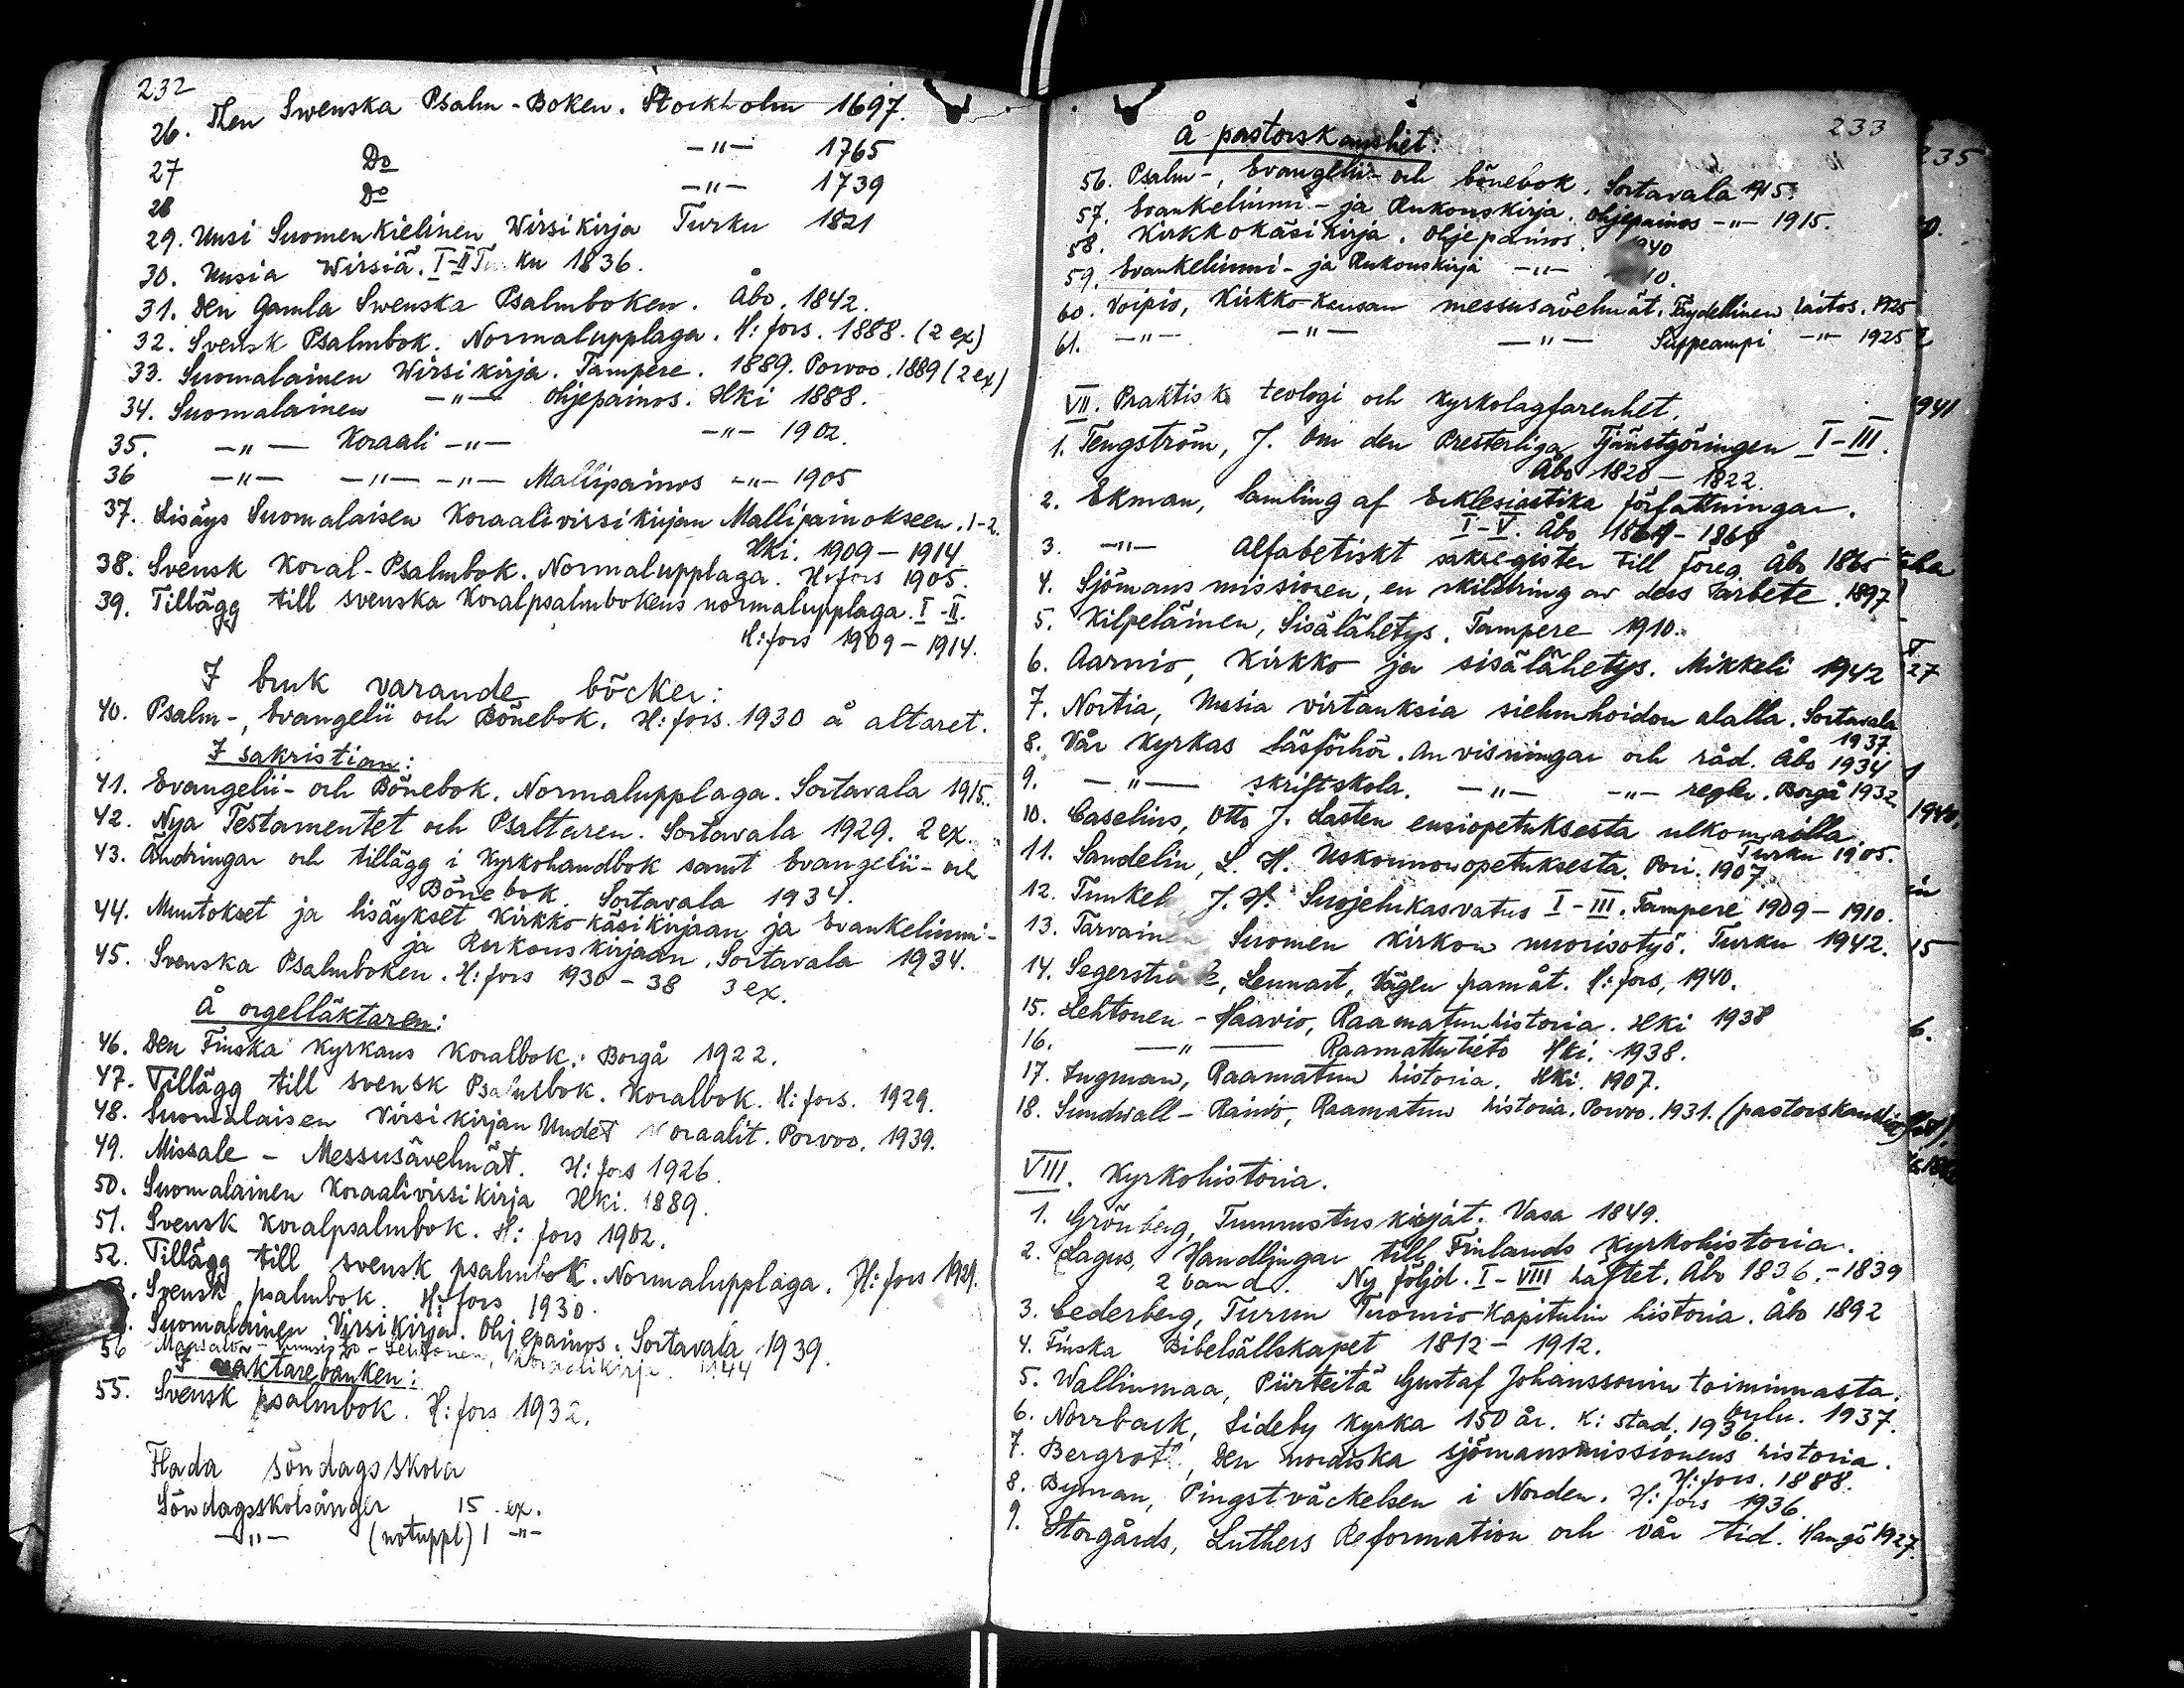 232
26. Then Swenska Psalm-Boken. Stockholm 1697.
27 Do -"- 1765
28 Do -"- 1739
29. Uusi Suomenkielinen Wirsikirja Turku 1821
30. Uusia Wirsiä. I-II Turku 1836.
31. Den Gamla Swenska Psalmboken. Åbo. 1842.
32. Svensk Psalmbok. Normalupplaga. H:fors. 1888. (2 ex)
33. Suomalainen Wirsikirja. Tampere. 1889. Porvoo. 1889 (2 ex)
34. Suomalainen -"- Ohjepainos. Hki 1888.
35. -"- Koraali -"- -"- 1902.
36 -"- -"- -"- Mallipainos -"- 1905
37. Lisäys Suomalaisen Koraalivirsikirjan Mallipainokseen. 1-2.
Hki. 1909-1914
38. Svensk Koral-Psalmbok. Normalupplaga. H:fors 1905.
39. Tillägg till svenska Koralpsalmbokens normalupplaga. I-II.
H:fors 1909-1914.
I bruk varande böcker:
40. Psalm-, Evangelii och Bönebok. H:fors. 1930 å altaret.
I sakristian:
41. Evangelii- och Bönebok. Normalupplaga. Sortavala 1915.
42. Nya Testamentet och Psaltaren. Sortavala 1929. 2 ex.
43. Ändringar och tillägg i Kyrkohandbok samt Evangelii- och
Bönebok. Sortavala 1934.
44. Muutokset ja lisäykset Kirkkokäsikirjaan ja Evankeliumi-
ja Rukouskirjaan. Sortavala 1934.
45. Svenska Psalmboken. H:fors 1930-38 3 ex.
Å orgelläktaren:
46. Den Finska Kyrkans Koralbok. Borgå 1922.
47. Tillägg till svensk Psalmbok. Koralbok. H:fors. 1929.
48. Suomalaisen Virsikirjan Uudet Koraalit. Porvoo. 1939.
49. Missale - Messusävelmät. H:fors 1926.
50. Suomalainen Koraalivirsikirja Hki. 1889.
51. Svensk Koralpsalmbok. H:fors 1902.
52. Tillägg till svensk psalmbok. Normalupplaga. H:fors 1929.
Svensk psalmbok. H:fors 1930.
Suomalainen Virsikirja. Ohjepainos. Sortavala 1939.
56 Lehtonen, Koraalikirja. 1944
I
55. Svensk psalmbok. H:fors 1932.
Flada söndagsskola
Söndagsskolsånger 15 ex.
-"- (notuppl) 1 -"-
233
Å pastorskansliet:
56. Psalm-, Evangelii- och bönebok. Sortavala 1915.
57. Evankeliumi- ja Rukouskirja. Ohjepainos -"- 1915.
58. Kirkkokäsikirja. Ohjepainos. 1940
59. Evankeliumi- ja Rukouskirja -"- 10.
60. Voipio, Kirkko-kansan messusävelmät. Täydellinen laitos. 1925
61. -"- -"- -"- Suppeampi -"- 1925
VII. Praktisk teologi och Kyrkolagfarenhet.
1. Tengström, J. Om den Presterliga Tjänstgöringen I-III.
Åbo 1820-1822.
2. Ekman, Samling af Ecklesiastika författningar.
I-V. Åbo 1864-1868
3. -"- Alfabetiskt sakregister till föreg. Åbo 1865
4. Sjömansmissionen, en skildring av dess arbete. 1897
5. Kilpeläinen, Sisälähetys. Tampere 1910.
6. Aarnio, Kirkko ja sisälähetys. Mikkeli 1942
7. Nortia, Uusia virtauksia sielunhoidon alalla. Sortavala
1937.
8. Vår Kyrkas Läsförhör. Anvisningar och råd. Åbo 1934
9. -"- skriftskola. -"- -"- regler. Borgå 1932
10. Caselius, Otto J. Lasten ensiopetuksesta ulkomailla.
Turku 1905.
11. Sandelin, L. H. Uskonnonopetuksesta. Pori. 1907.
12. Tunkelo, J. H. Suojelukasvatus I-III. Tampere 1909-1910.
13. Tarvainen Suomen Kirkon nuorisotyö. Turku 1942.
14. Segerstråle, Lennart, Vägen framåt. H:fors, 1940.
15. Lehtonen-Haavio, Raamatunhistoria. Hki 1938
16. -"- Raamattutieto Hki. 1938.
17. Ingman, Raamatun historia. Hki. 1907.
18. Sundwall-Rainio, Raamatun historia. Porvoo. 1931. (pastorskansliet).
VIII. Kyrkohistoria.
1. Grönberg, Tunnustuskirjat. Vasa 1849.
2. Lagus, Handlingar till Finlands Kyrkohistoria.
2 band. Ny följd. I-VIII häftet. Åbo 1836.-1839
3. Cederberg, Turun Tuomio-Kapitulin historia. Åbo 1892
4. Finska Bibelsällskapet 1812-1912.
5. Wallinmaa, Piirteitä Gustaf Johanssonin toiminnasta.
Oulu. 1937.
6. Norrback, Sideby Kyrka 150 år. K:stad, 1936.
7. Bergroth, Den nordiska sjömansmissionens historia.
H:fors. 1888.
8. Byman, Pingstväckelsen i Norden. H:fors 1936.
9. Storgårds, Luthers Reformation och vår tid. Hangö 1927.
235
1941
27
1940.
15
6.